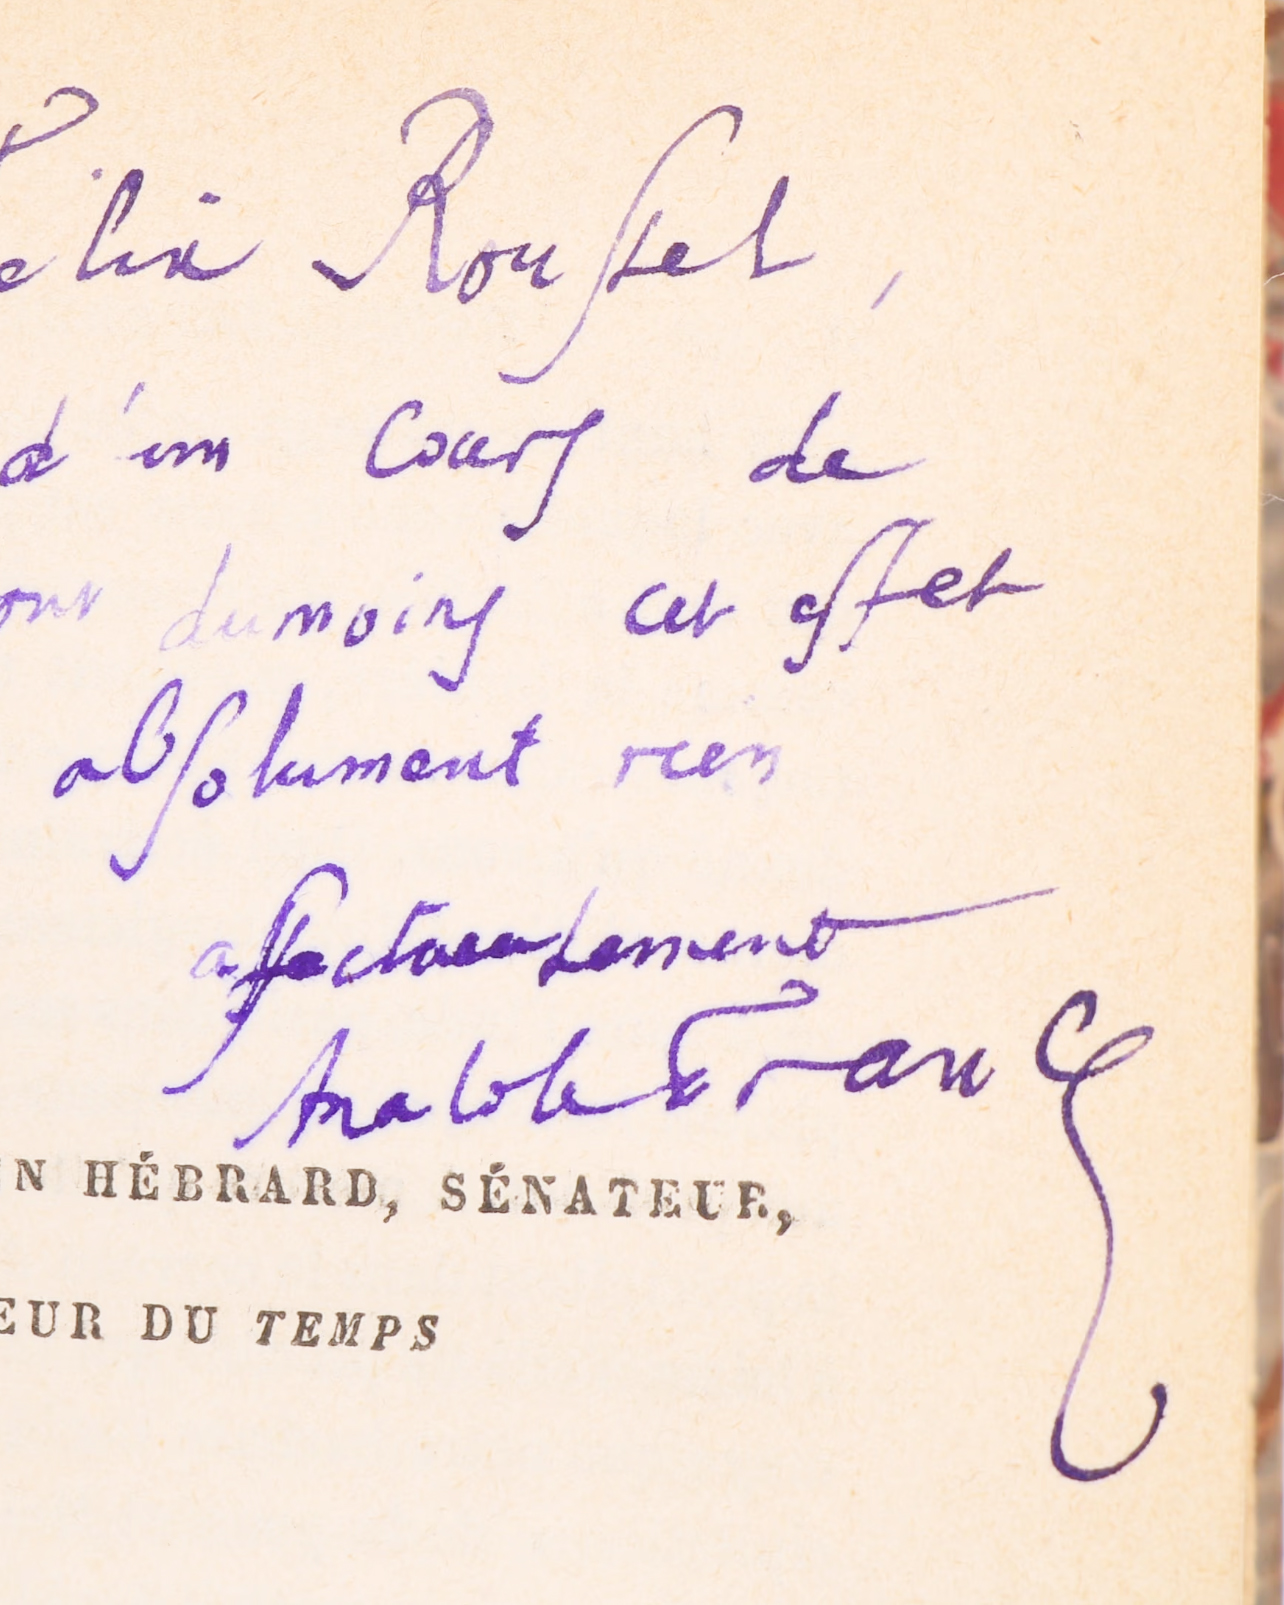 Félix Roussel,
d'un cours de
dumoins cet effet
absolument rien
affectueusement
Anatole France
N HÉBRARD, SÉNATEUR,
EUR DU TEMPS